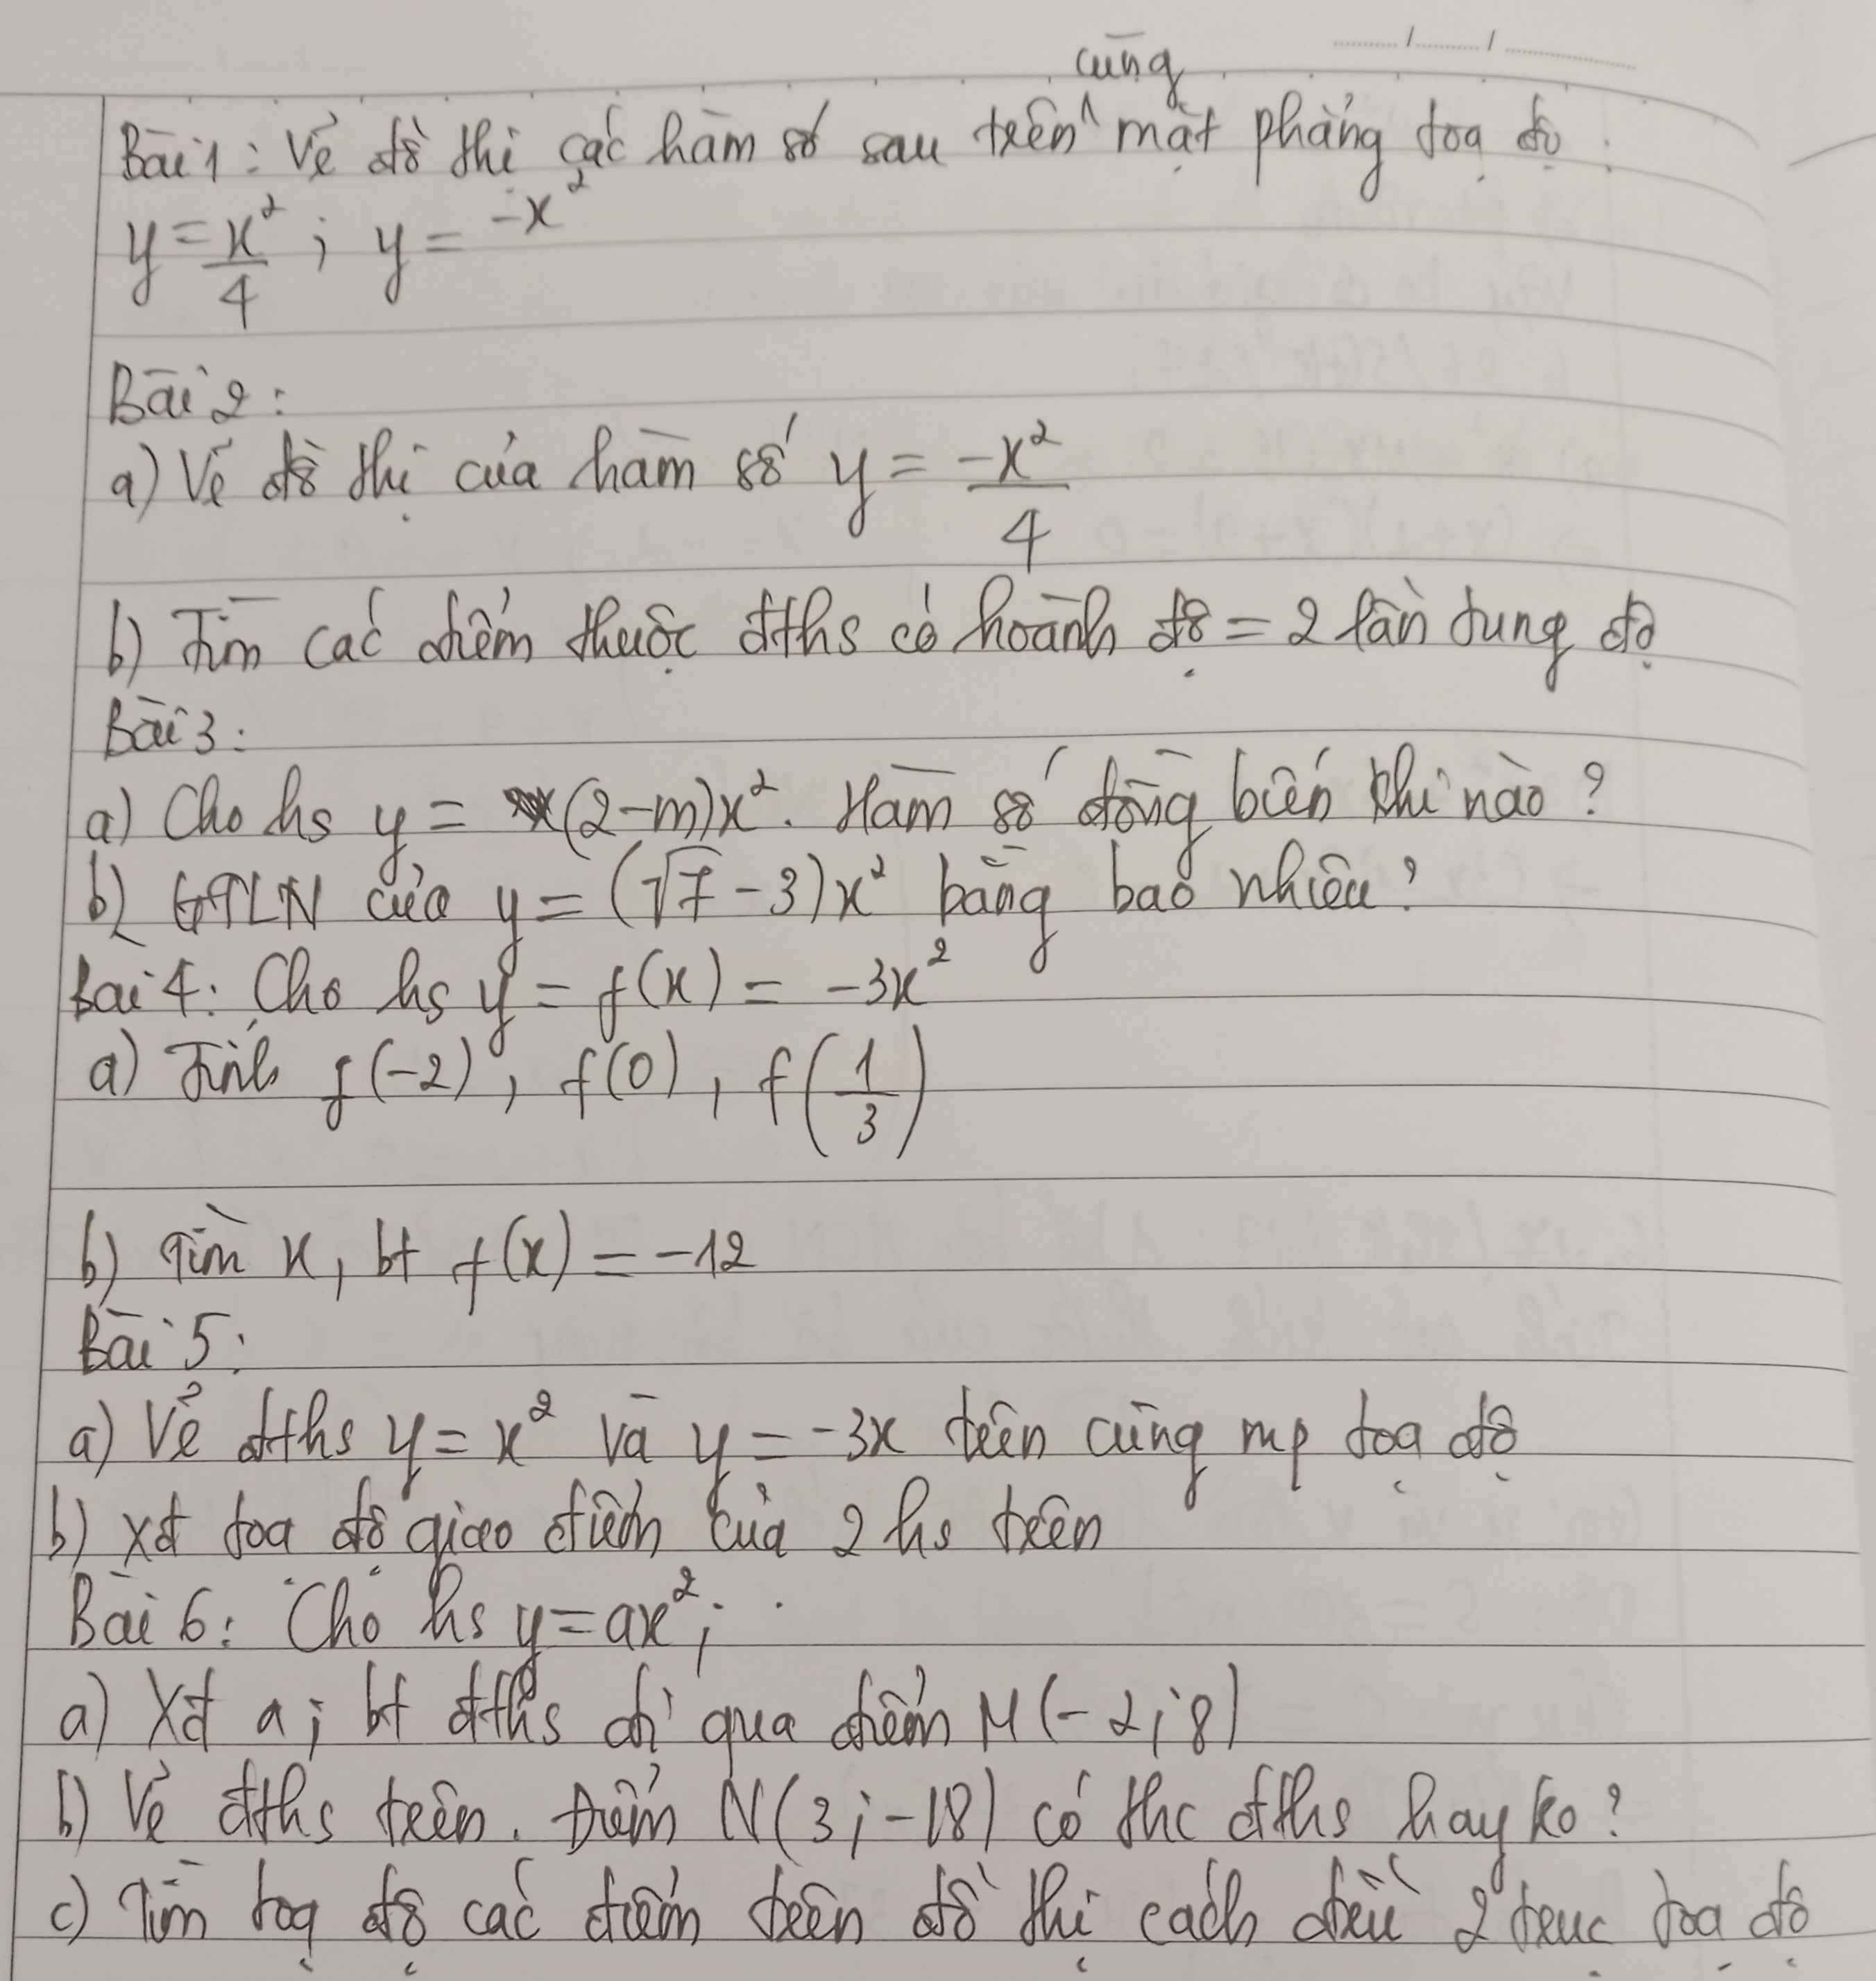 cùng
Bài 1: Vẽ đồ thị các hàm số sau trên ^ mặt phẳng tọa độ:
y = x²/4 ; y = -x²
Bài 2:
a) Vẽ đồ thị của hàm số y = -x²/4
b) Tìm các điểm thuộc đths có hoành độ = 2 lần tung độ
Bài 3:
a) Cho hs y = (2-m)x². Hàm số đồng biến khi nào?
b) GTLN của y = (√7 - 3)x² bằng bao nhiêu?
Bài 4: Cho hs y = f(x) = -3x²
a) Tính f(-2), f(0), f(1/3)
b) Tìm x, bt f(x) = -12
Bài 5:
a) Vẽ đths y = x² và y = -3x trên cùng mp tọa độ
b) Xđ tọa độ giao điểm của 2 hs trên
Bài 6: Cho hs y = ax²;
a) Xđ a; bt đths đi qua điểm M(-2;8)
b) Vẽ đths trên. Điểm N(3;-18) có thc đths hay ko?
c) Tìm toạ độ các điểm trên đồ thị cách đều 2 trục tọa độ